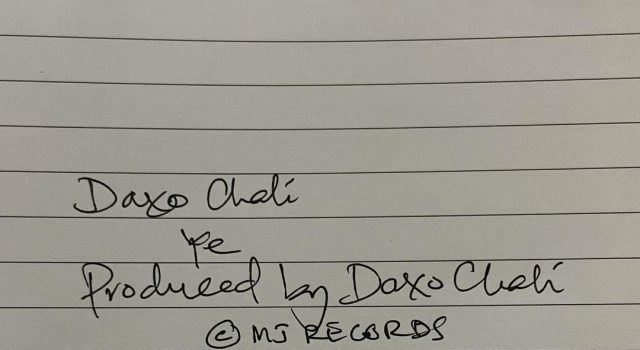 Daxo Chali
Ye
Produced by Daxo Chali
© MJ RECORDS